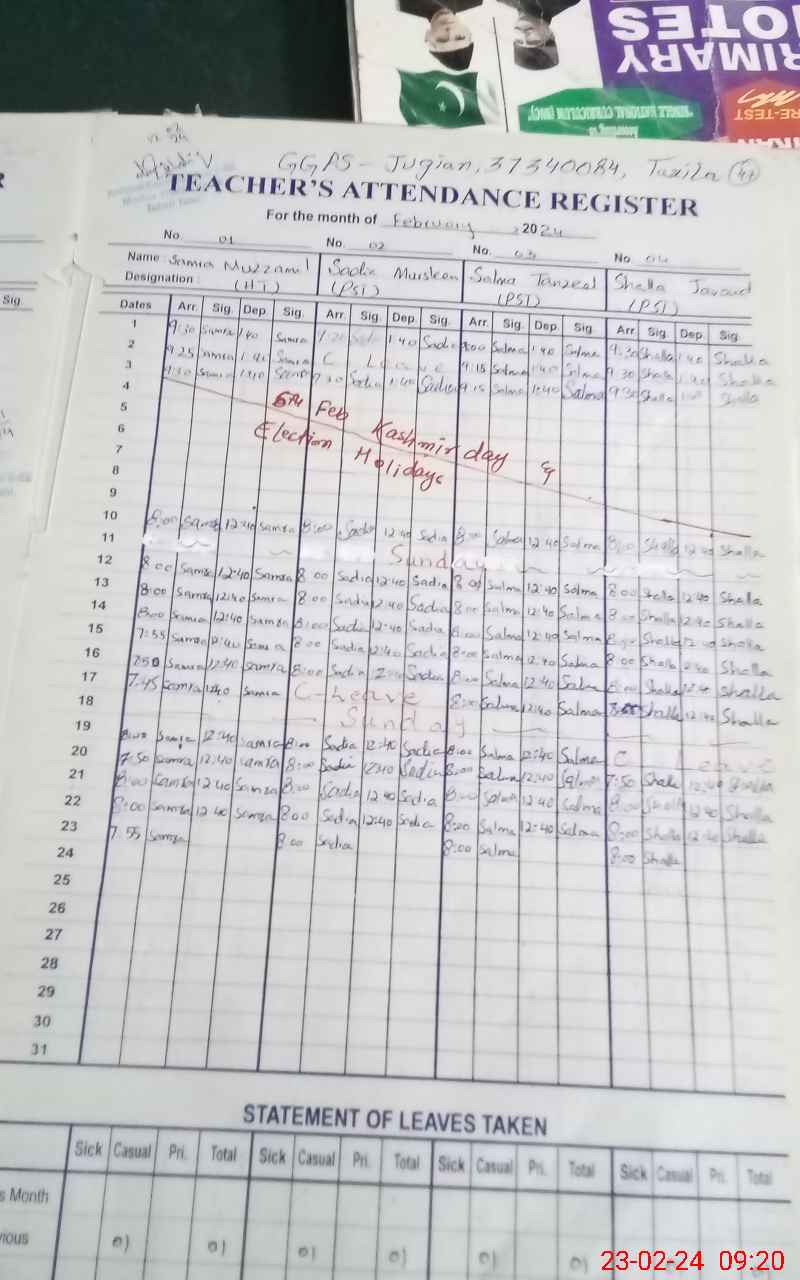 PRIMARY
NOTES
SINGLE NATIONAL CURRICULUM (SNC)
According to
RE-TEST
GGPS - Jugian, 37340084, Taxila
TEACHER'S ATTENDANCE REGISTER
For the month of February 2024
No. 01 No. 02 No. 03 No. 04
Name: Samra Muzzamil Sadia Mursleen Salma Tanzeel Shella Javaid
Designation: (HT) (PST) (PST) (PST)
Dates Arr. Sig. Dep. Sig. Arr. Sig. Dep. Sig. Arr. Sig. Dep. Sig. Arr. Sig. Dep. Sig.
1 9:30 Samra 1:40 Samra Sadia 1:40 Sadia 9:00 Salma 1:40 Salma 9:30 Shella 1:40 Shella
2 9:25 Samra 1:40 Samra C Leave 9:15 Salma 1:40 Salma 9:30 Shella 1:40 Shella
3 9:30 Samra 1:40 Samra 9:30 Sadia 1:40 Sadia 9:15 Salma 1:40 Salma 9:30 Shella 1:40 Shella
4
5 5th Feb Kashmir day &
6 Election Holidays
7
8
9
10 8:00 Samra 12:40 Samra 8:00 Sadia 12:40 Sadia 8:00 Salma 12:40 Salma 8:00 Shella 12:40 Shella
11 Sunday
12 8:00 Samra 12:40 Samra 8:00 Sadia 12:40 Sadia 8:00 Salma 12:40 Salma 8:00 Shella 12:40 Shella
13 8:00 Samra 12:40 Samra 8:00 Sadia 12:40 Sadia 8:00 Salma 12:40 Salma 8:00 Shella 12:40 Shella
14 8:00 Samra 12:40 Samra 8:00 Sadia 12:40 Sadia 8:00 Salma 12:40 Salma 8:00 Shella 12:40 Shella
15 7:55 Samra 12:40 Samra 8:00 Sadia 12:40 Sadia 8:00 Salma 12:40 Salma 8:00 Shella 12:40 Shella
16 7:50 Samra 12:40 Samra 8:00 Sadia 12:40 Sadia 8:00 Salma 12:40 Salma 8:00 Shella 12:40 Shella
17 7:45 Samra 12:40 Samra C-Leave 8:00 Salma 12:40 Salma 8:00 Shella 12:40 Shella
18 Sunday
19 8:00 Samra 12:40 Samra 8:00 Sadia 12:40 Sadia 8:00 Salma 12:40 Salma C Leave
20 7:50 Samra 12:40 Samra 8:00 Sadia 12:40 Sadia 8:00 Salma 12:40 Salma 7:50 Shella 12:40 Shella
21 8:00 Samra 12:40 Samra 8:00 Sadia 12:40 Sadia 8:00 Salma 12:40 Salma 8:00 Shella 12:40 Shella
22 8:00 Samra 12:40 Samra 8:00 Sadia 12:40 Sadia 8:00 Salma 12:40 Salma 8:00 Shella 12:40 Shella
23 7:55 Samra 8:00 Sadia 8:00 Salma 8:00 Shella
24
25
26
27
28
29
30
31
STATEMENT OF LEAVES TAKEN
Sick Casual Pri. Total Sick Casual Pri. Total Sick Casual Pri. Total Sick Casual Pri. Total
s Month
vious
23-02-24 09:20